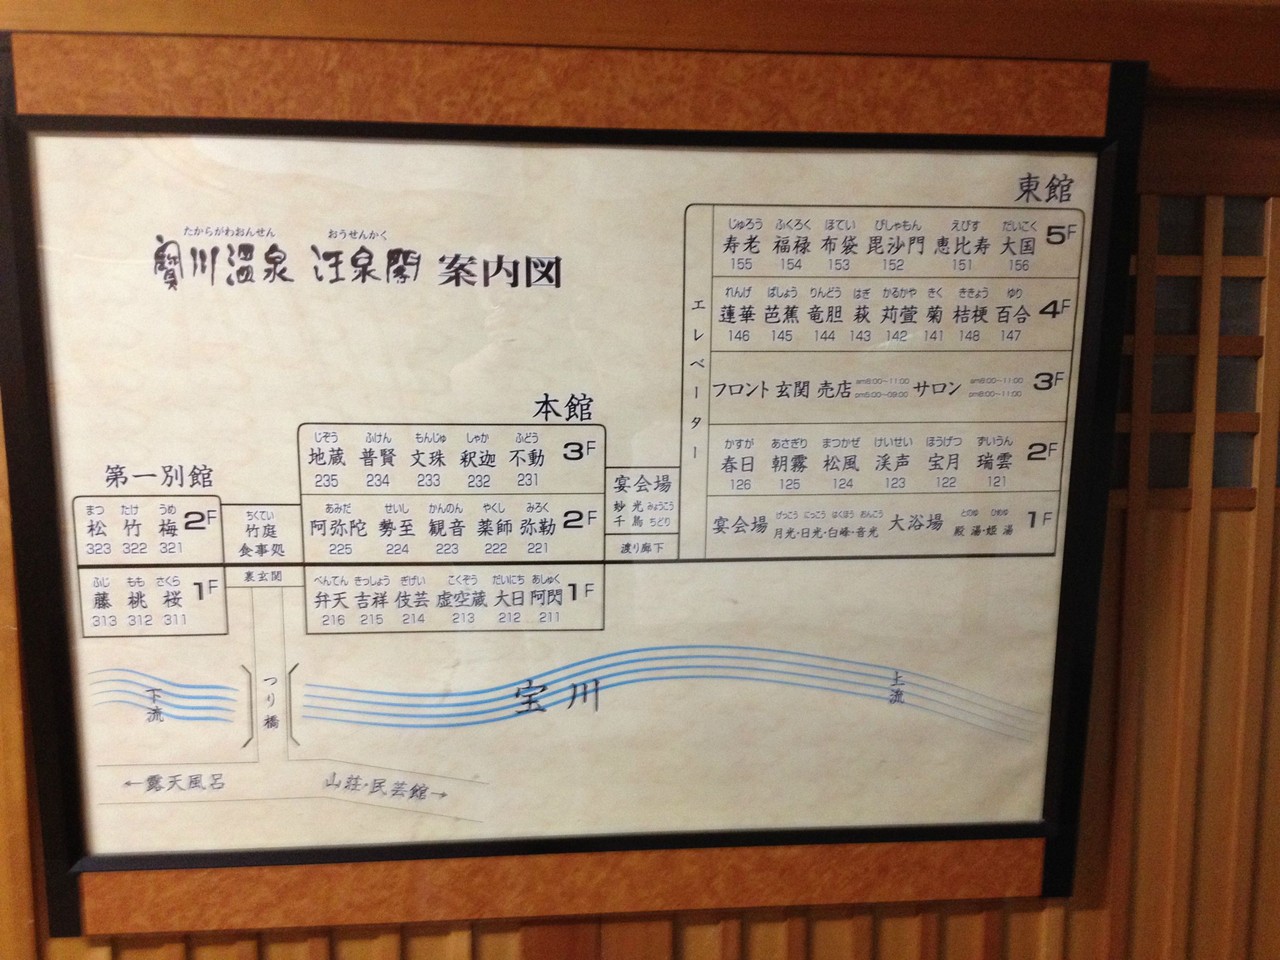 たからがわおんせん おうせんかく
寶川温泉 汪泉閣 案内図
東館
じゅろう ふくろく ほてい びしゃもん えびす だいこく
寿老 福禄 布袋 毘沙門 恵比寿 大国 5F
155 154 153 152 151 156
れんげ ばしょう りんどう はぎ かるかや きく ききょう ゆり
蓮華 芭蕉 竜胆 萩 苅萱 菊 桔梗 百合 4F
146 145 144 143 142 141 148 147
エレベーター
フロント 玄関 売店 am8:00～11:00 サロン am8:00～11:00 3F
pm5:00～09:00 pm8:00～11:00
かすが あさぎり まつかぜ けいせい ほうげつ ずいうん
春日 朝霧 松風 渓声 宝月 瑞雲 2F
126 125 124 123 122 121
げっこう にっこう はくほう おんこう とのゆ ひめゆ
宴会場 月光・日光・白峰・音光 大浴場 殿湯・姫湯 1F
本館
じぞう ふけん もんじゅ しゃか ふどう
地蔵 普賢 文珠 釈迦 不動 3F
235 234 233 232 231
あみだ せいし かんのん やくし みろく
阿弥陀 勢至 観音 薬師 弥勒 2F
225 224 223 222 221
べんてん きっしょう ぎげい こくぞう だいにち あしゅく
弁天 吉祥 伎芸 虚空蔵 大日 阿閦 1F
216 215 214 213 212 211
宴会場
妙光 みょうこう
千鳥 ちどり
渡り廊下
第一別館
まつ たけ うめ
松 竹 梅 2F
323 322 321
ふじ もも さくら
藤 桃 桜 1F
313 312 311
ちくてい
竹庭
食事処
裏玄関
下流
つり橋
宝川
上流
←露天風呂
山荘・民芸館→